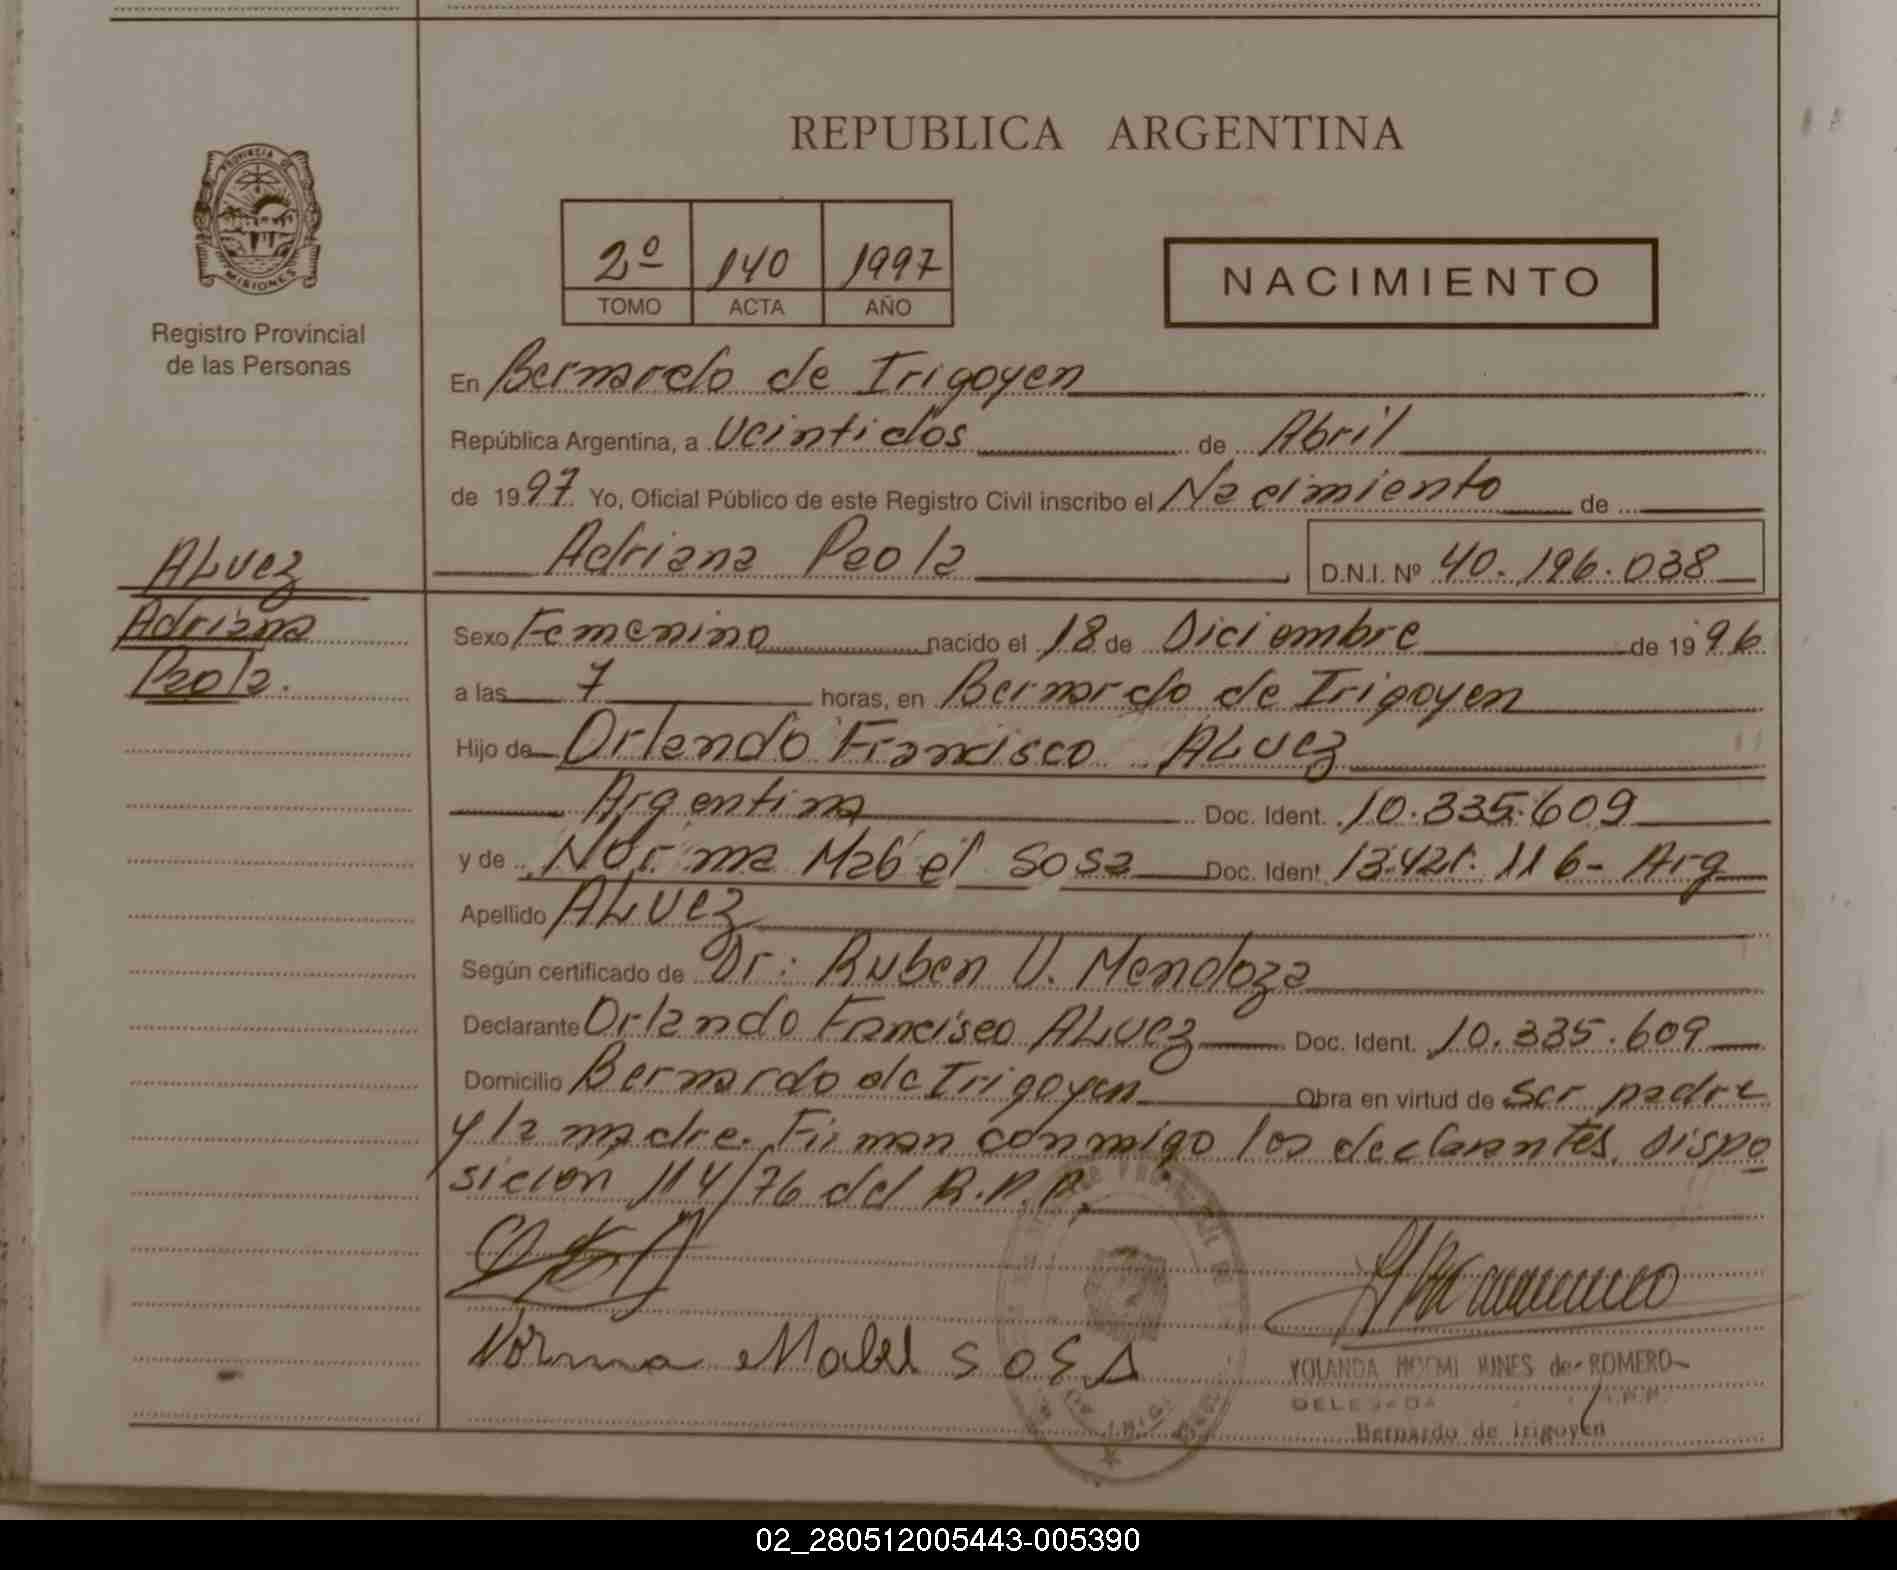 REPUBLICA ARGENTINA
PROVINCIA DE
MISIONES
Registro Provincial
de las Personas
2º 140 1997
TOMO ACTA AÑO
NACIMIENTO
En Bernardo de Irigoyen
República Argentina, a veintidos de Abril
de 1997 Yo, Oficial Público de este Registro Civil inscribo el Nacimiento de
Adriana Paola D.N.I. Nº 40.196.038
ALvez
Adriana
Paola.
Sexo Femenino nacido el 18 de Diciembre de 1996
a las 7 horas, en Bernardo de Irigoyen
Hijo de Orlando Francisco ALvez
Argentina Doc. Ident. 10.335.609
y de Norma Mabel Sosa Doc. Ident. 13.421.116- Arg
Apellido ALvez
Según certificado de Dr: Ruben V. Mendoza
Declarante Orlando Francisco ALvez Doc. Ident. 10.335.609
Domicilio Bernardo de Irigoyen Obra en virtud de ser padre
y la madre. Firman conmigo los declarantes. Dispo
sicion 114/76 del R.P.P.
Norma Mabel SOSA
YOLANDA NOEMI de ROMERO
DELEGADA
Bernardo de Irigoyen
02_280512005443-005390